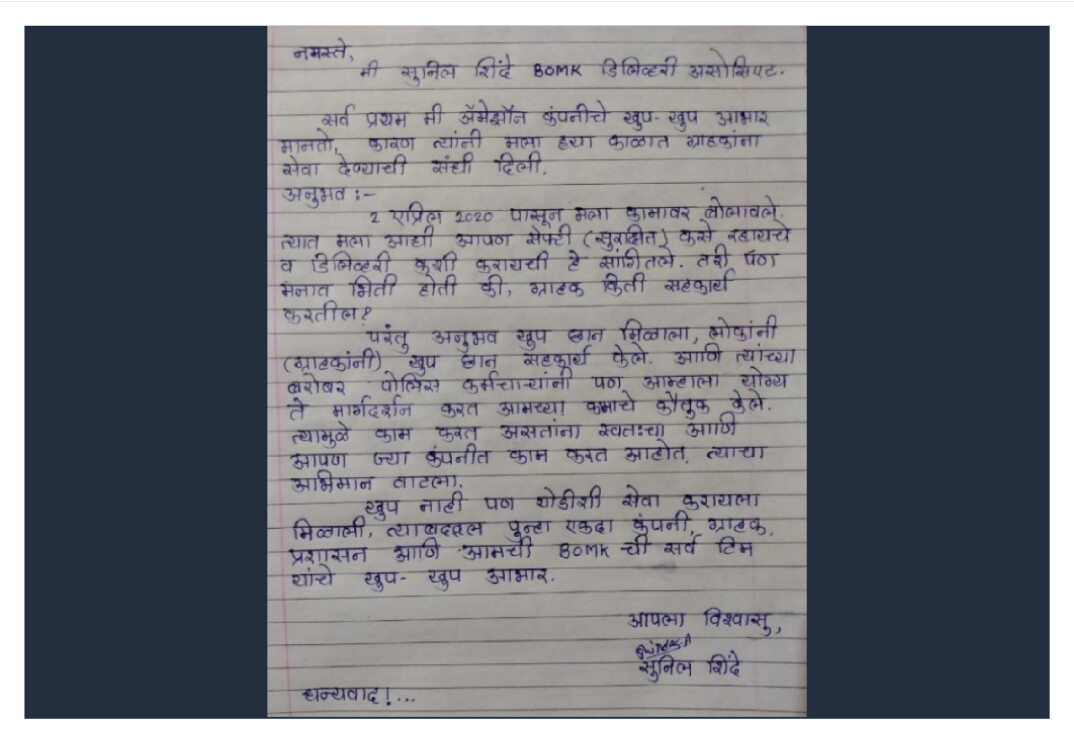 नमस्ते,
मी सुनिल शिंदे BOMK डिलिव्हरी असोसिएट.
सर्व प्रथम मी ॲमेझॉन कंपनीचे खुप-खुप आभार
मानतो, कारण त्यांनी मला ह्या काळात ग्राहकांना
सेवा देण्याची संधी दिली.
अनुभव :-
2 एप्रिल 2020 पासून मला कामावर बोलावले.
त्यात मला आधी आपण सेफ्टी (सुरक्षित) कसे रहायचे
व डिलिव्हरी कशी करायची हे सांगितले. तरी पण
मनात भिती होती की, ग्राहक किती सहकार्य
करतील?
परंतु अनुभव खुप छान मिळाला, लोकांनी
(ग्राहकांनी) खुप छान सहकार्य केले. आणि त्यांच्या
बरोबर पोलिस कर्मचाऱ्यांनी पण आम्हाला योग्य
ते मार्गदर्शन करत आमच्या कामाचे कौतुक केले.
त्यामुळे काम करत असतांना स्वतःचा आणि
आपण ज्या कंपनीत काम करत आहोत, त्याचा
अभिमान वाटला.
खुप नाही पण थोडीशी सेवा करायला
मिळाली, त्याबद्दल पुन्हा एकदा कंपनी, ग्राहक,
प्रशासन आणि आमची BOMK ची सर्व टिम
यांचे खुप-खुप आभार.
आपला विश्वासु,
सुनिल शिंदे
धन्यवाद!...